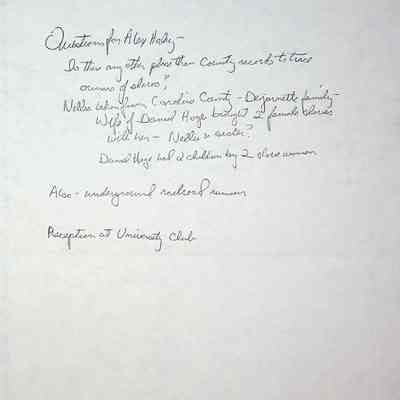 Questions for Alex Haley -
Is there any other place than County records to trace
owners of slaves?
Nellie taken from Caroline County - Dejarnette family -
Wife of Daniel Hoge brought 2 female slaves
with her - Nellie & sister?
Daniel Hoge had 2 children by 2 slave women
Also - underground railroad runner
Reception at University Club